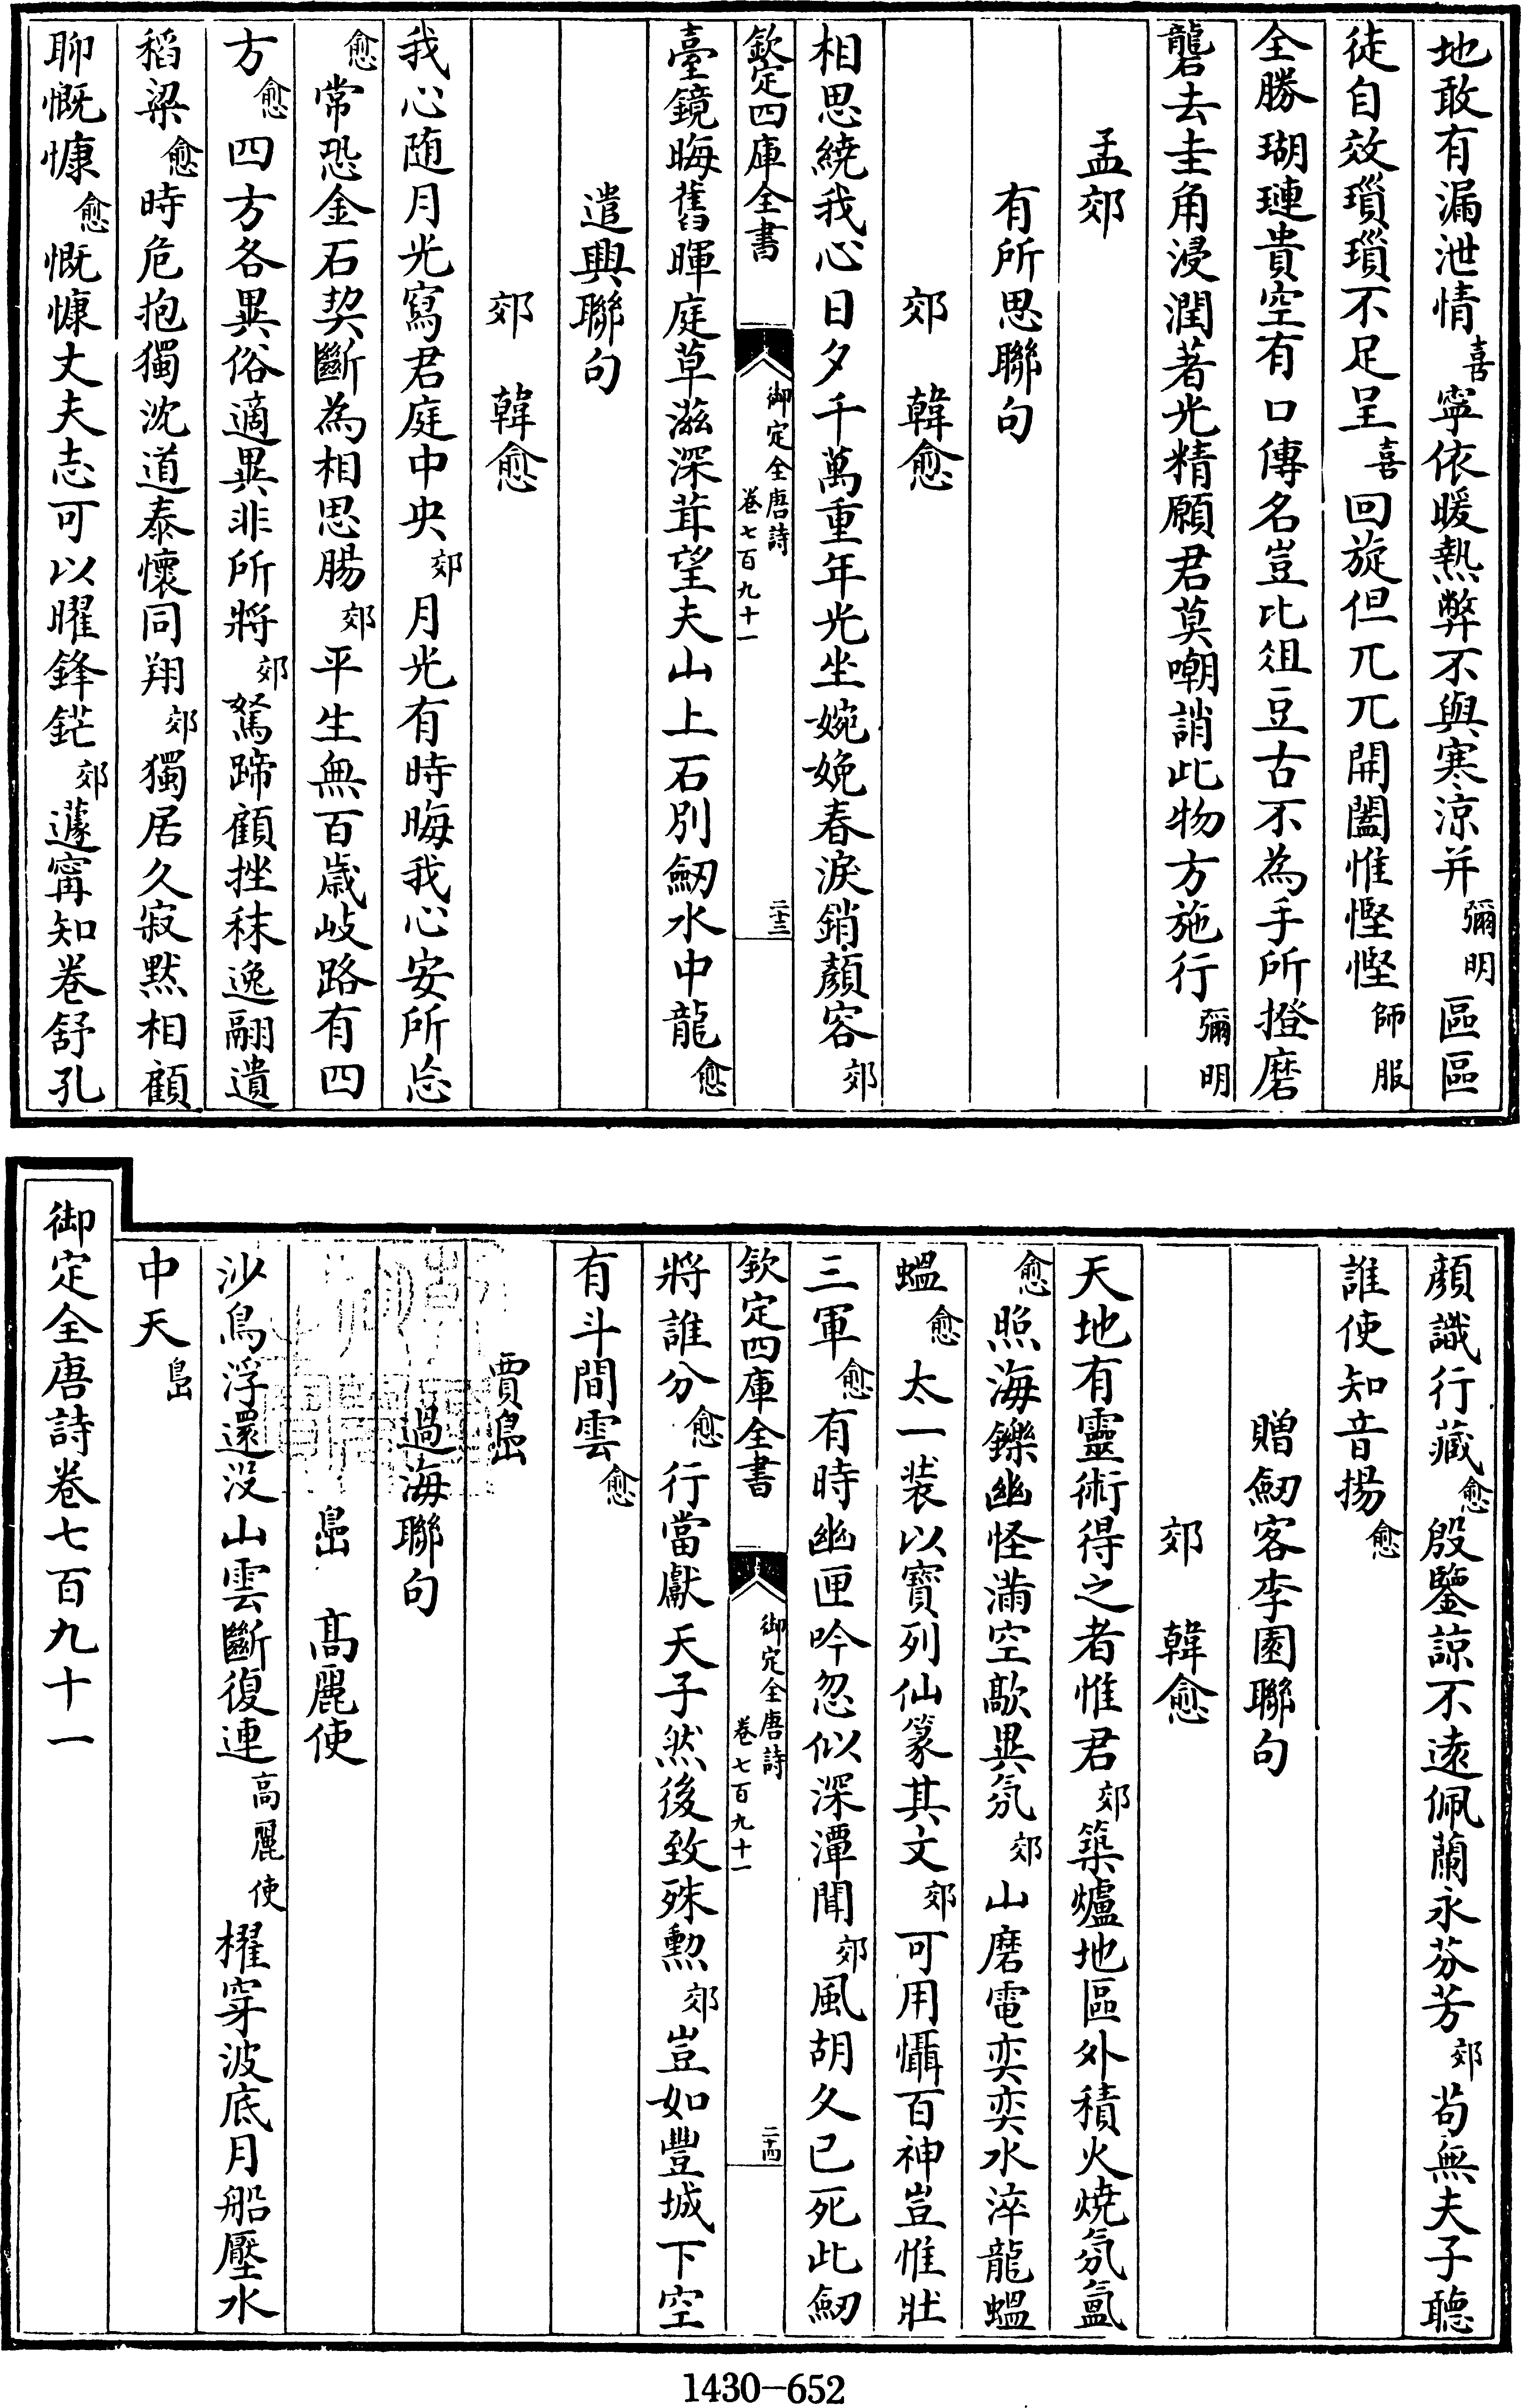 地敢有漏泄情喜寧依暖熱弊不與寒涼并彌明區區
徒自效瑣瑣不足呈喜回旋但兀兀開闔惟慳慳師服
全勝瑚璉貴空有口傳名豈比俎豆古不為手所撜磨
礱去圭角浸潤著光精願君莫嘲誚此物方施行彌明
孟郊
有所思聯句
郊 韓愈
相思繞我心日夕千萬重年光坐婉娩春淚銷顏容郊
欽定四庫全書 御定全唐詩 卷七百九十一 二十三
臺鏡晦舊暉庭草滋深茸望夫山上石別劒水中龍愈
遣興聯句
郊 韓愈
我心隨月光寫君庭中央郊月光有時晦我心安所忘
愈常恐金石契斷為相思腸郊平生無百歲岐路有四
方愈四方各異俗適異非所將郊駑蹄顧挫秣逸翮遺
稻粱愈時危抱獨沈道泰懷同翔郊獨居久寂默相顧
聊慨慷愈慨慷丈夫志可以曜鋒鋩郊蘧寗知卷舒孔
顏識行藏愈殷鑒諒不遠佩蘭永芬芳郊苟無夫子聽
誰使知音揚愈
贈劒客李園聯句
郊 韓愈
天地有靈術得之者惟君郊築爐地區外積火燒氛氳
愈照海鑠幽怪滿空歊異氛郊山磨電奕奕水淬龍蝹
蝹愈太一裝以寶列仙篆其文郊可用懾百神豈惟壯
三軍愈有時幽匣吟忽似深潭聞郊風胡久已死此劒
欽定四庫全書 御定全唐詩 卷七百九十一 二十四
將誰分愈行當獻天子然後致殊勲郊豈如豐城下空
有斗間雲愈
賈島
過海聯句
島 高麗使
沙鳥浮還没山雲斷復連高麗使櫂穿波底月船壓水
中天島
御定全唐詩卷七百九十一
1430-652